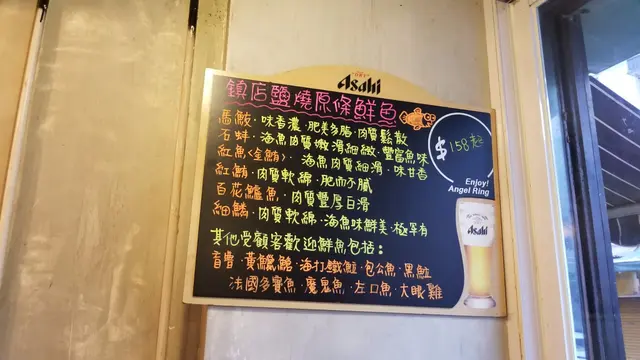 Asahi
鎮店鹽燒原條鮮魚
馬鮫·味香濃·肥美多脂·肉質鬆散
石蚌·海魚肉質嫩滑細緻·豐富魚味
紅魚〈金鮪〉·海魚肉質細滑·味甘香
紅鮪·肉質軟綿·肥而不膩
百花鱸魚·肉質豐厚白滑
細鱗·肉質軟綿·海魚味鮮美·極罕有
其他受顧客歡迎鮮魚包括：
盲曹·黃鱲鯧·海打鐵鱲·包公魚·黑鱲
法國多寶魚·魔鬼魚·左口魚·大眼雞
$158起
Enjoy!
Angel Ring
Asahi